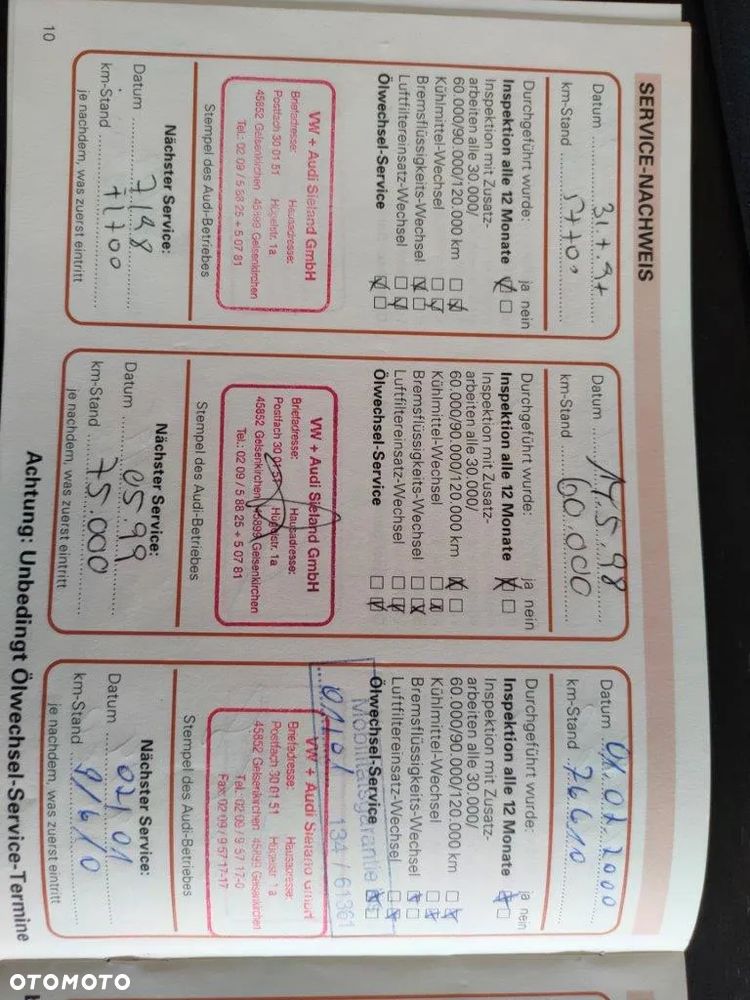 SERVICE-NACHWEIS
Datum 31.7.97
km-Stand 57700
Durchgeführt wurde: ja nein
Inspektion alle 12 Monate
Inspektion mit Zusatz-
arbeiten alle 30.000/
60.000/90.000/120.000 km
Kühlmittel-Wechsel
Bremsflüssigkeits-Wechsel
Luftfiltereinsatz-Wechsel
Ölwechsel-Service
VW + Audi Sieland GmbH
Briefadresse: Hausadresse:
Postfach 30 01 51 Hügelstr. 1a
45852 Gelsenkirchen 45899 Gelsenkirchen
Tel.: 02 09 / 5 88 25 + 5 07 81
Stempel des Audi-Betriebes
Nächster Service:
Datum 7/98
km-Stand 71700
je nachdem, was zuerst eintritt
Datum 14.5.98
km-Stand 60.000
Durchgeführt wurde: ja nein
Inspektion alle 12 Monate
Inspektion mit Zusatz-
arbeiten alle 30.000/
60.000/90.000/120.000 km
Kühlmittel-Wechsel
Bremsflüssigkeits-Wechsel
Luftfiltereinsatz-Wechsel
Ölwechsel-Service
VW + Audi Sieland GmbH
Briefadresse: Hausadresse:
Postfach 30 01 51 Hügelstr. 1a
45852 Gelsenkirchen 45899 Gelsenkirchen
Tel.: 02 09 / 5 88 25 + 5 07 81
Stempel des Audi-Betriebes
Nächster Service:
Datum 05.99
km-Stand 75.000
je nachdem, was zuerst eintritt
Datum 01.02.2000
km-Stand 76610
Durchgeführt wurde: ja nein
Inspektion alle 12 Monate
Inspektion mit Zusatz-
arbeiten alle 30.000/
60.000/90.000/120.000 km
Kühlmittel-Wechsel
Bremsflüssigkeits-Wechsel
Luftfiltereinsatz-Wechsel
Ölwechsel-Service
Mobilitätsgarantie bis
01/01 134 / 61361
VW + Audi Sieland GmbH
Briefadresse: Hausadresse:
Postfach 30 01 51 Hügelstr. 1a
45852 Gelsenkirchen 45899 Gelsenkirchen
Tel.: 02 09 / 9 57 17-0
Fax: 02 09 / 9 57 17-17
Stempel des Audi-Betriebes
Nächster Service:
Datum 02/01
km-Stand 91610
je nachdem, was zuerst eintritt
Achtung: Unbedingt Ölwechsel-Service-Termine
10
OTOMOTO